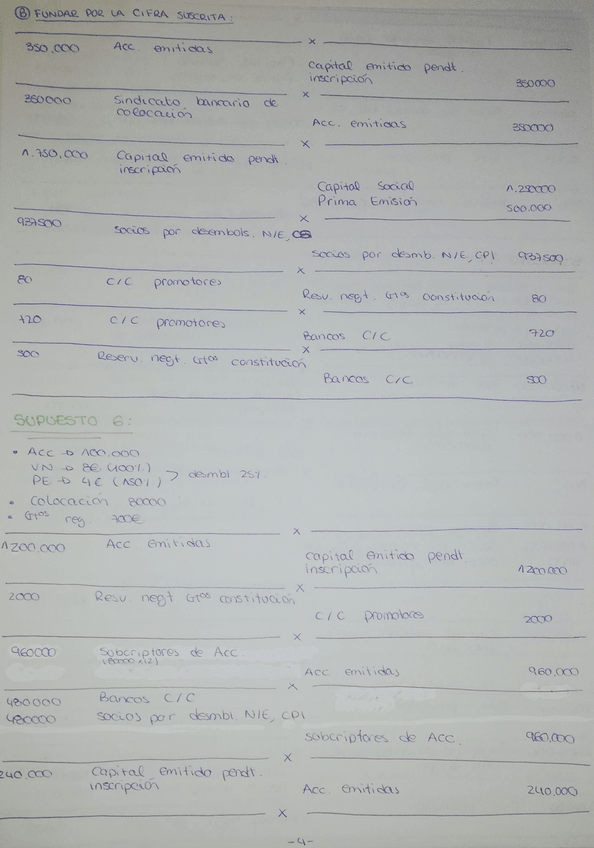 B FUNDAR POR LA CIFRA SUSCRITA:
x
350.000 Acc. emitidas
Capital emitido pendt.
inscripción 350000
x
350000 Sindicato bancario de
colocación
Acc. emitidas 350000
x
1.750.000 Capital emitido pendt.
inscripción
Capital Social 1.250000
Prima Emisión 500.000
x
937500 Socios por desembols. N/E, CS
Socios por desmb. N/E, CPI 937500
x
80 C/C promotores
Resv. negt. Gtos constitución 80
x
720 C/C promotores
Bancos C/C 720
x
500 Reserv. negt. Gtos constitución
Bancos C/C 500
SUPUESTO 6:
• Acc → 100.000
VN → 8€ (100%)
PE → 4€ (150%) > desmbl 25%
• Colocación 80000
• Gtos reg. 700€
x
1200.000 Acc emitidas
Capital emitido pendt
inscripción 1200.000
x
2000 Resv. negt Gtos constitución
C/C promotores 2000
x
960000 Subcriptores de Acc.
(80000x12)
Acc emitidas 960.000
x
480000 Bancos C/C
480000 socios por desmbl. N/E, CPI
subcriptores de Acc. 960.000
x
240.000 Capital emitido pendt.
inscripción
Acc. emitidas 240.000
x
-4-